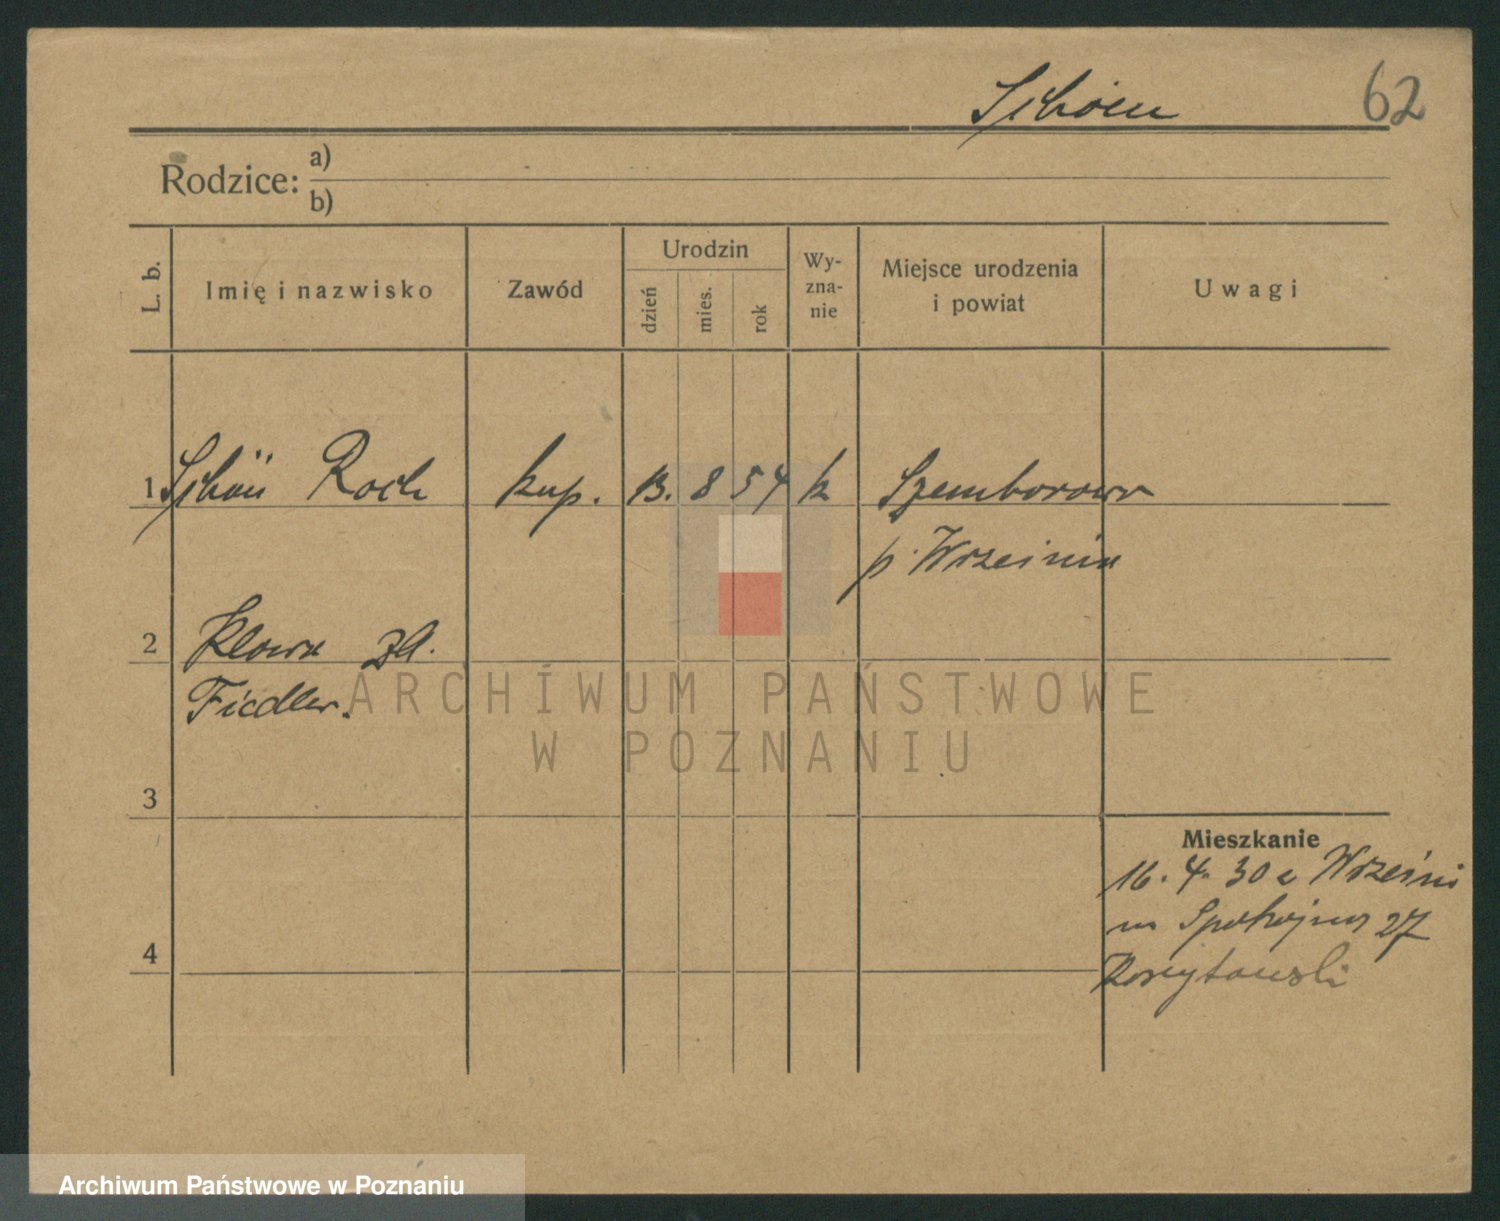 Schön 62
Rodzice: a)
b)
L. b. Imię i nazwisko Zawód Urodzin dzień mies. rok Wy-
zna-
nie Miejsce urodzenia
i powiat Uwagi
1 Schön Roch kup. 13. 8 54 k Szemborowo
p. Września
2 Klara
Fiedler.
ARCHIWUM PAŃSTWOWE
W POZNANIU
3
Mieszkanie
16. 4. 30 z Wrześni
Spokojna 27
4
Archiwum Państwowe w Poznaniu